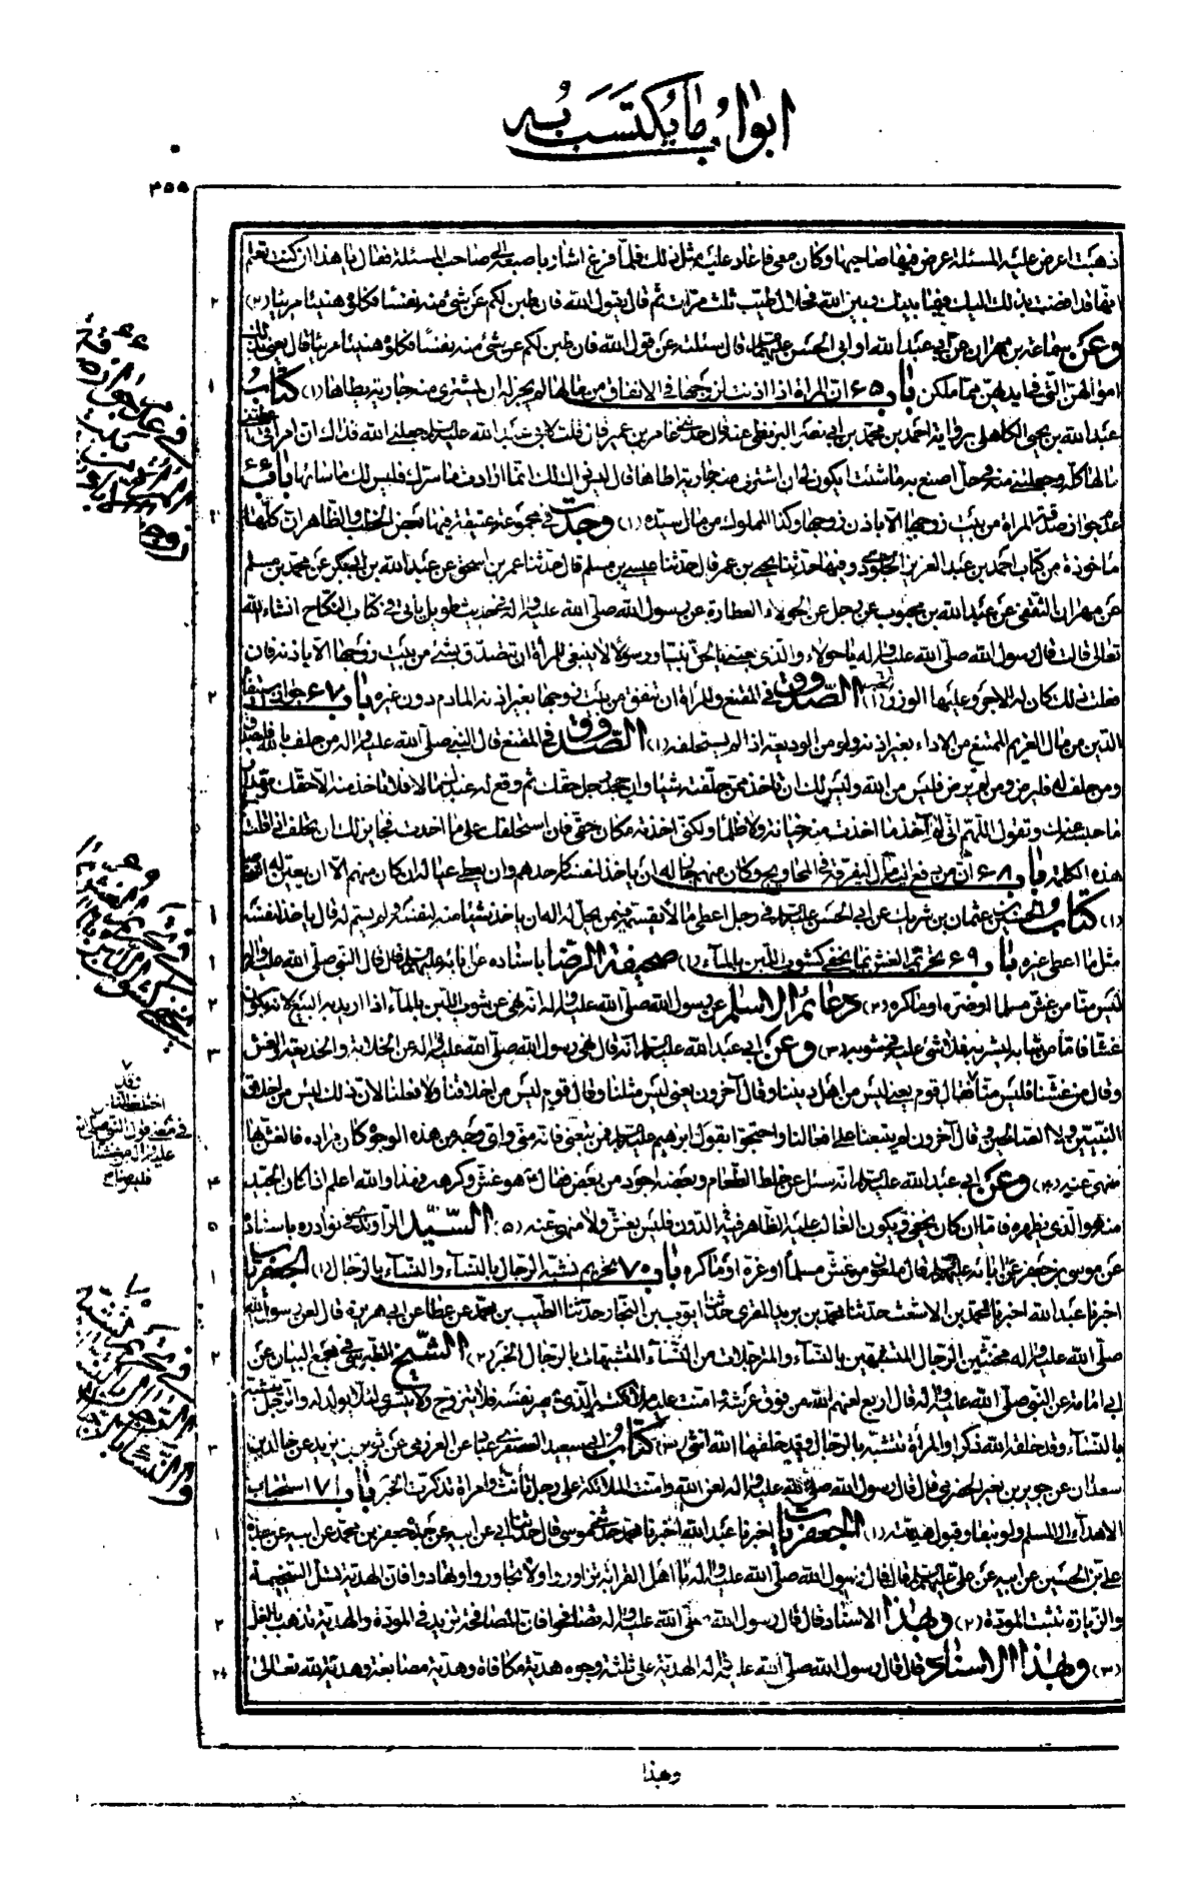 ابواب ما يكتسب به
٣٥٥
ذهبت اعرض عليه المسئلة عرض فيها صاحبها وكان معى فاعاد عليه مثل ذلك فلما فرغ اشار باصبعه الى صاحب المسئلة فقال يا هذا ان كنت تعلم
انها قد افضت بذلك اليك فيما بينك وبين الله فحلال طيب ثلث مرات ثم قال يقول الله فان طبن لكم عن شئ منه نفسا فكلوه هنيئا مريئا (٢)
وعن سماعة بن مهران عن ابى عبد الله او ابى الحسن عليهما قال سئلته عن قول الله فان طبن لكم عن شئ منه نفسا فكلوه هنيئا مريئا قال يعنى بذلك
اموالهن التى فى ايديهن مما ملكن باب ٦٥ ان المراة اذا اذنت لزوجها فى الانفاق من مالها لم يجز له ان يشترى منه جارية يطاها (١) كتاب
عبد الله بن يحيى الكاهلى برواية احمد بن محمد بن ابى نصر البزنطى عنه قال حدثنى عامر بن عمير قال قلت لابى عبد الله عليه جعلنى الله فداك ان امراتى
مالها كله وجعلتنى منه فى حل اصنع به ما شئت ايكون لى ان اشترى منه جارية اطاها قال ليس لك ذلك انما ارادت ما سرك فليس لك ما ساءها باب ٦٦
عدم جواز صدقة المراة من بيت زوجها الا باذن زوجها وكذا المملوك من مال سيده (١) وجدت فى مجموعة عتيقة فيها بعض الخطب والظاهر ان كلها
ماخوذة من كتاب احمد بن عبد العزيز الجلودى وفيها حدثنا يحيى بن عمر قال حدثنا عيسى بن مسلم قال حدثنا عمر بن اسحق عن عبد الله بن عن محمد بن مسلم
عن مهران الثقفى عن عبد الله بن محبوب عن رجل عن الحولاء العطارة عن رسول الله صلى الله عليه واله فى حديث طويل ياتى فى كتاب النكاح انشاء الله
تعالى قالت قال رسول الله صلى الله عليه واله يا حولاء والذى بعثنى بالحق نبيا ورسولا لا ينبغى للمرأة ان تتصدق بشئ من بيت زوجها الا باذنه فان
فعلت ذلك كان له الاجر وعليها الوزر الخبر (٢) الصدوق فى المقنع وللمراة ان تنفق من بيت زوجها بغير اذنه المادوم دون غيره باب ٦٧ جواز استيفاء
الدين من مال الغريم الممتنع من الاداء بغير اذنه ولو من الوديعة اذا لم يستحلفه (١) الصدوق فى المقنع قال النبى صلى الله عليه واله من حلف بالله فليصدق
ومن حلف له فليرض ومن لم يرض فليس من الله وليس لك ان تاخذ ممن حلفته شيئا وان جحدك رجل حقك ثم وقع له عندك مال فلا تاخذ منه الا حقك
ما حبسه عنك وتقول اللهم انى لم آخذ ما اخذت منه خيانة ولا ظلما ولكنى اخذته مكان حقى فان استحلفك على ما اخذت فجايز لك ان تحلف اذا قلت
هذه الكلمة باب ٦٨ ان من دفع اليه مال ليفرقه فى المحاويج وكان منهم جاز له ان ياخذ لنفسه كاحدهم وان يعطى عياله ان كان منهم الا ان يعين له
(١) كتاب الحسين بن عثمان بن شريك عن ابى الحسن عليه فى رجل اعطى مالا يقسمه فيمن يحل له اله ان ياخذ شيئا منه لنفسه ولم يسم له قال ياخذ لنفسه
مثل ما اعطى غيره باب ٦٩ تحريم الغش بما يخفى كشوب اللبن بالماء (١) صحيفة الرضا باسناده عن ابائه عليهم قال قال النبى صلى الله عليه واله
ليس منا من غش مسلما او ضره او ماكره (٢) دعائم الاسلام عن رسول الله صلى الله عليه واله انه نهى عن شوب اللبن بالماء اذا اريد به البيع لانه يكون
غشا فاما من شابه ليشربه فلا شئ عليه فى شوبه (٣) وعن ابى عبد الله عليه انه قال نهى رسول الله صلى الله عليه واله عن الخلابة والخديعة والغش
وقال من غشنا فليس منا فقال قوم يعنى ليس من اهل ديننا وقال آخرون يعنى ليس مثلنا وقال قوم ليس من اخلاقنا ولا فعلنا لان ذلك ليس من اخلاق
النبيين ولا الصالحين وقال آخرون لم يتبعنا على افعالنا واحتجوا بقول ابرهيم عليه فمن تبعنى فانه منى واى وجه من هذه الوجوه كان مراده فالغش بها
منهى عنه (٤) وعن ابى عبد الله عليه انه سئل عن خلط الطعام وبعضه اجود من بعض فقال هو غش وكرهه فهذا والله اعلم اذا كان الجيد
منه هو الذى يظهر فاما ان كان يخفى ويكون الغالب عليه الظاهر فيه الدون فليس بغش ولا منهى عنه (٥) السيد الراوندى فى نوادره باسناده
عن موسى بن جعفر عن ابائه عليهم قال ملعون من غش مسلما او غره او ماكره باب ٧٠ تحريم تشبه الرجال بالنساء والنساء بالرجال (١) الجعفريات
اخبرنا عبد الله اخبرنا محمد بن الاشعث حدثنا محمد بن بريد المقرى حدثنا ايوب بن النجار حدثنا الطيب بن محمد عن عطا عن ابى هريرة قال لعن رسول الله
صلى الله عليه واله مخنثين الرجال المتشبهين بالنساء والمترجلات من النساء المتشبهات بالرجال الخبر (٢) الشيخ الطبرسى فى مجمع البيان عن
ابى امامة عن النبى صلى الله عليه واله قال اربع لعنهم الله من فوق عرشه وامنت عليه ملائكته الذى يحصر نفسه فلا يتزوج ولا يتسرى لئلا يولد له والرجل يتشبه
بالنساء وقد خلقه الله ذكرا والمرأة تتشبه بالرجال وقد خلقها الله انثى (٣) كتاب ابى سعيد العصفرى عباد عن العرزمى عن ثوير بن يزيد عن خالد بن
سعدان عن جوير بن نعير الحضرمى قال قال رسول الله صلى الله عليه واله لعن الله وامنت الملائكة على رجل تأنث وامراة تذكرت الخبر باب ٧١ استحباب
الاهداء الى المسلم ولو نبقا وقبول هديته (١) الجعفريات اخبرنا عبد الله اخبرنا محمد حدثنى موسى قال حدثنا ابى عن ابيه عن جده جعفر بن محمد عن ابيه عن جده
على بن الحسين عن ابيه عن على عليهم قال قال رسول الله صلى الله عليه واله يا اهل القرابة تزاوروا ولا تجاوروا وتهادوا فان الهدية تسل السخيمة
والزيارة تثبت المودة (٢) وبهذا الاسناد قال قال رسول الله صلى الله عليه واله تصافحوا فان المصافحة تزيد فى المودة والهدية تذهب بالغل
(٣) وبهذا الاسناد قال قال رسول الله صلى الله عليه واله الهدية على ثلثة وجوه هدية مكافاة وهدية مصانعة وهدية لله تعالى
وهذا
فقد
اختلف الناس
فى معنى قول النبى صلى
عليه واله من غشنا
فليس منا